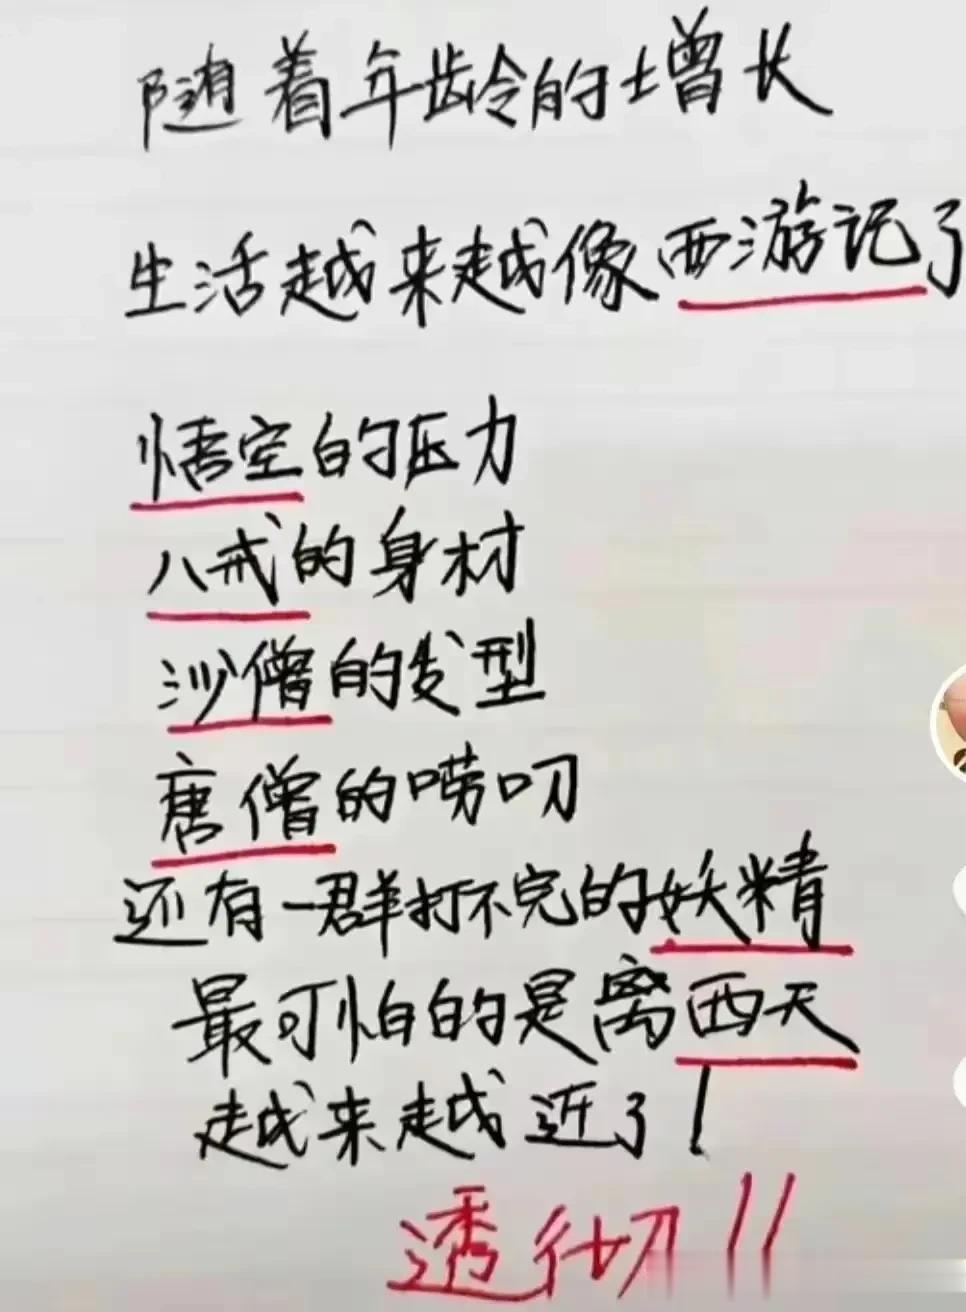 随着年龄的增长
生活越来越像西游记了
悟空的压力
八戒的身材
沙僧的发型
唐僧的唠叨
还有一群打不完的妖精
最可怕的是离西天
越来越近了!
透彻!!